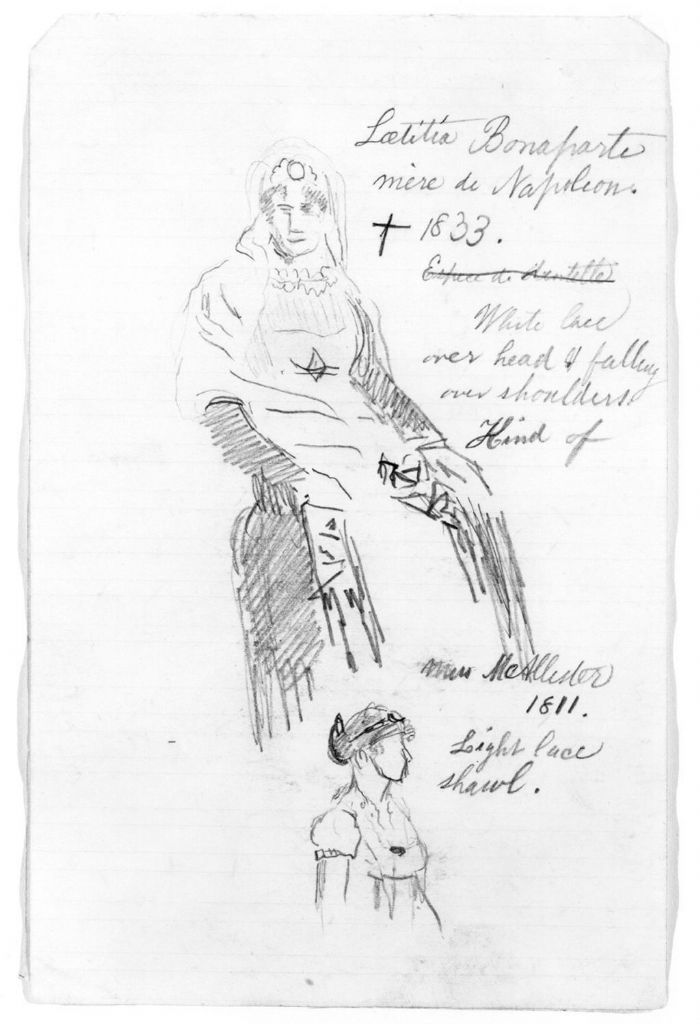 Lætitia Bonaparte
mère de Napoleon.
† 1833.
Espece de dentelle
White lace
over head & falling
over shoulders.
Kind of
Miss McAllister
1811.
Light lace
shawl.